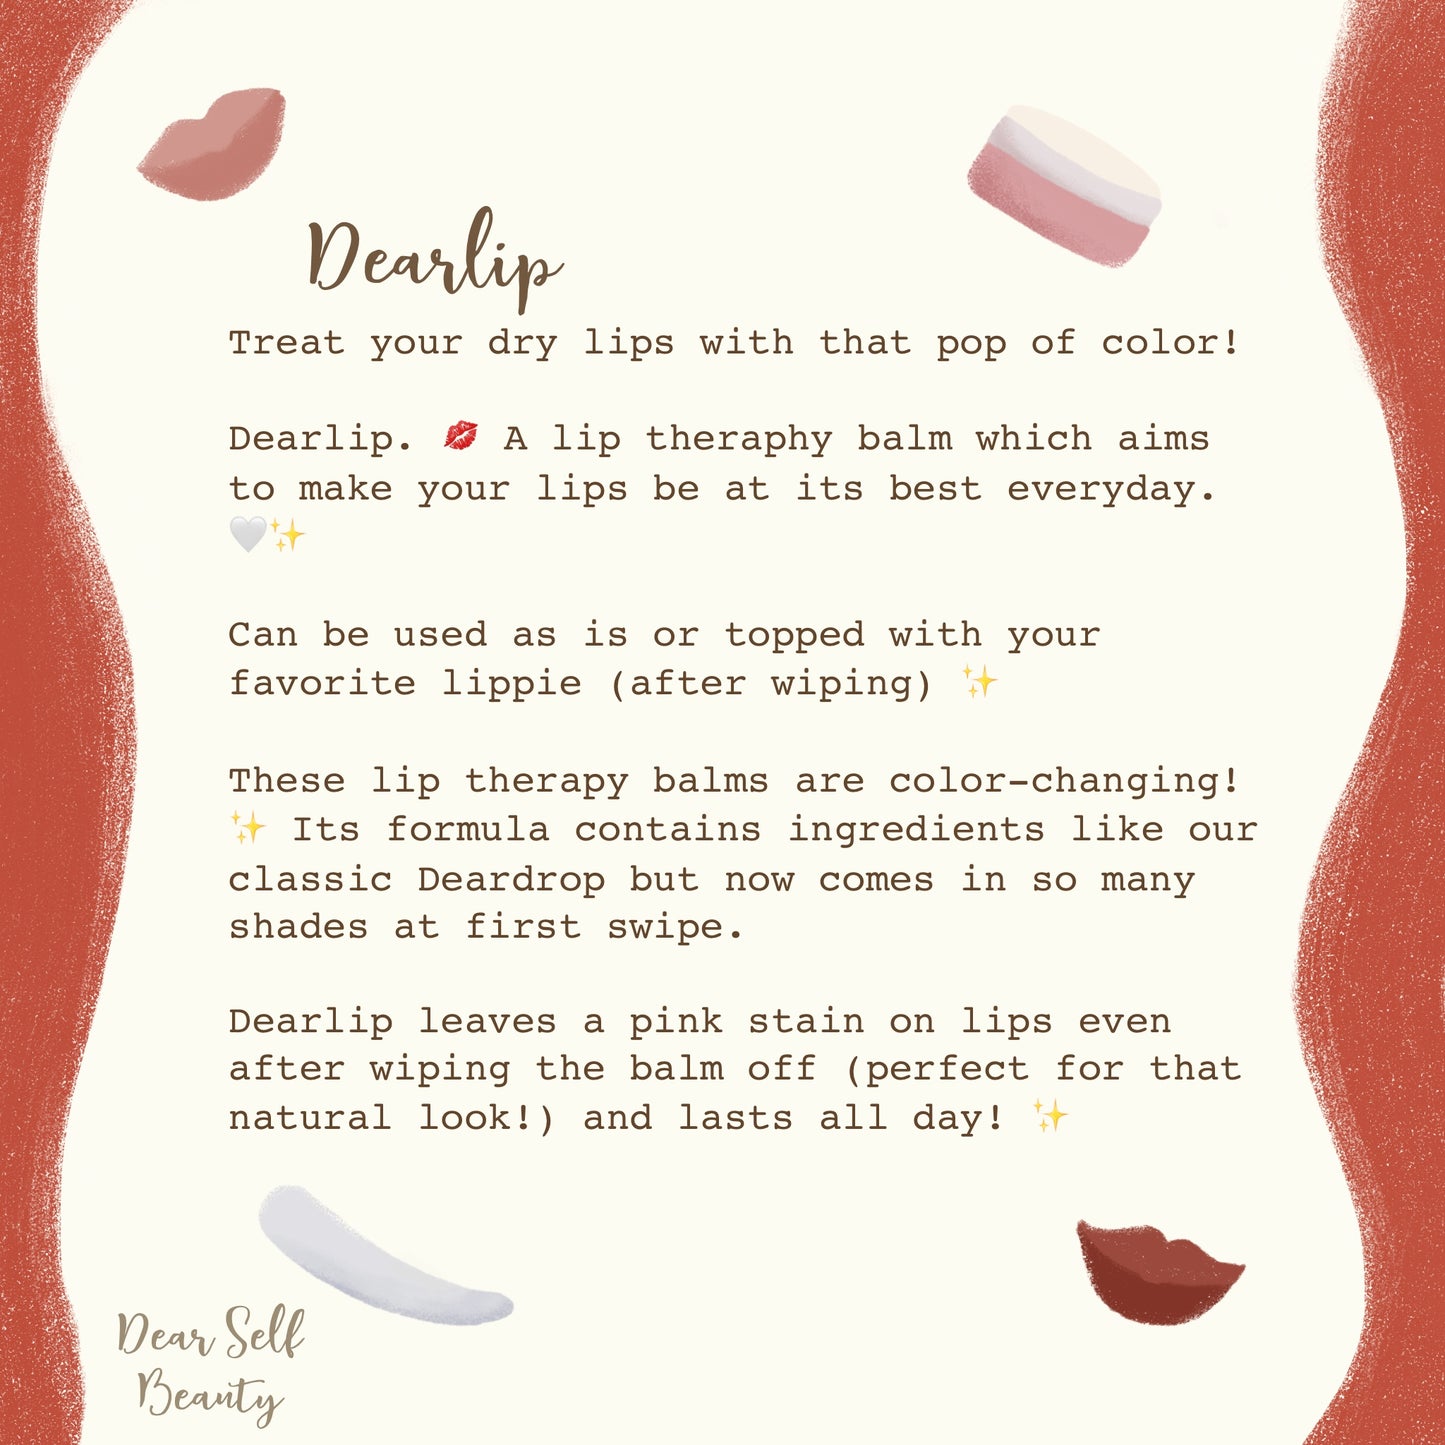 Dearlip
Treat your dry lips with that pop of color!
Dearlip. 💋 A lip theraphy balm which aims
to make your lips be at its best everyday.
🤍✨
Can be used as is or topped with your
favorite lippie (after wiping) ✨
These lip therapy balms are color-changing!
✨ Its formula contains ingredients like our
classic Deardrop but now comes in so many
shades at first swipe.
Dearlip leaves a pink stain on lips even
after wiping the balm off (perfect for that
natural look!) and lasts all day! ✨
Dear Self
Beauty